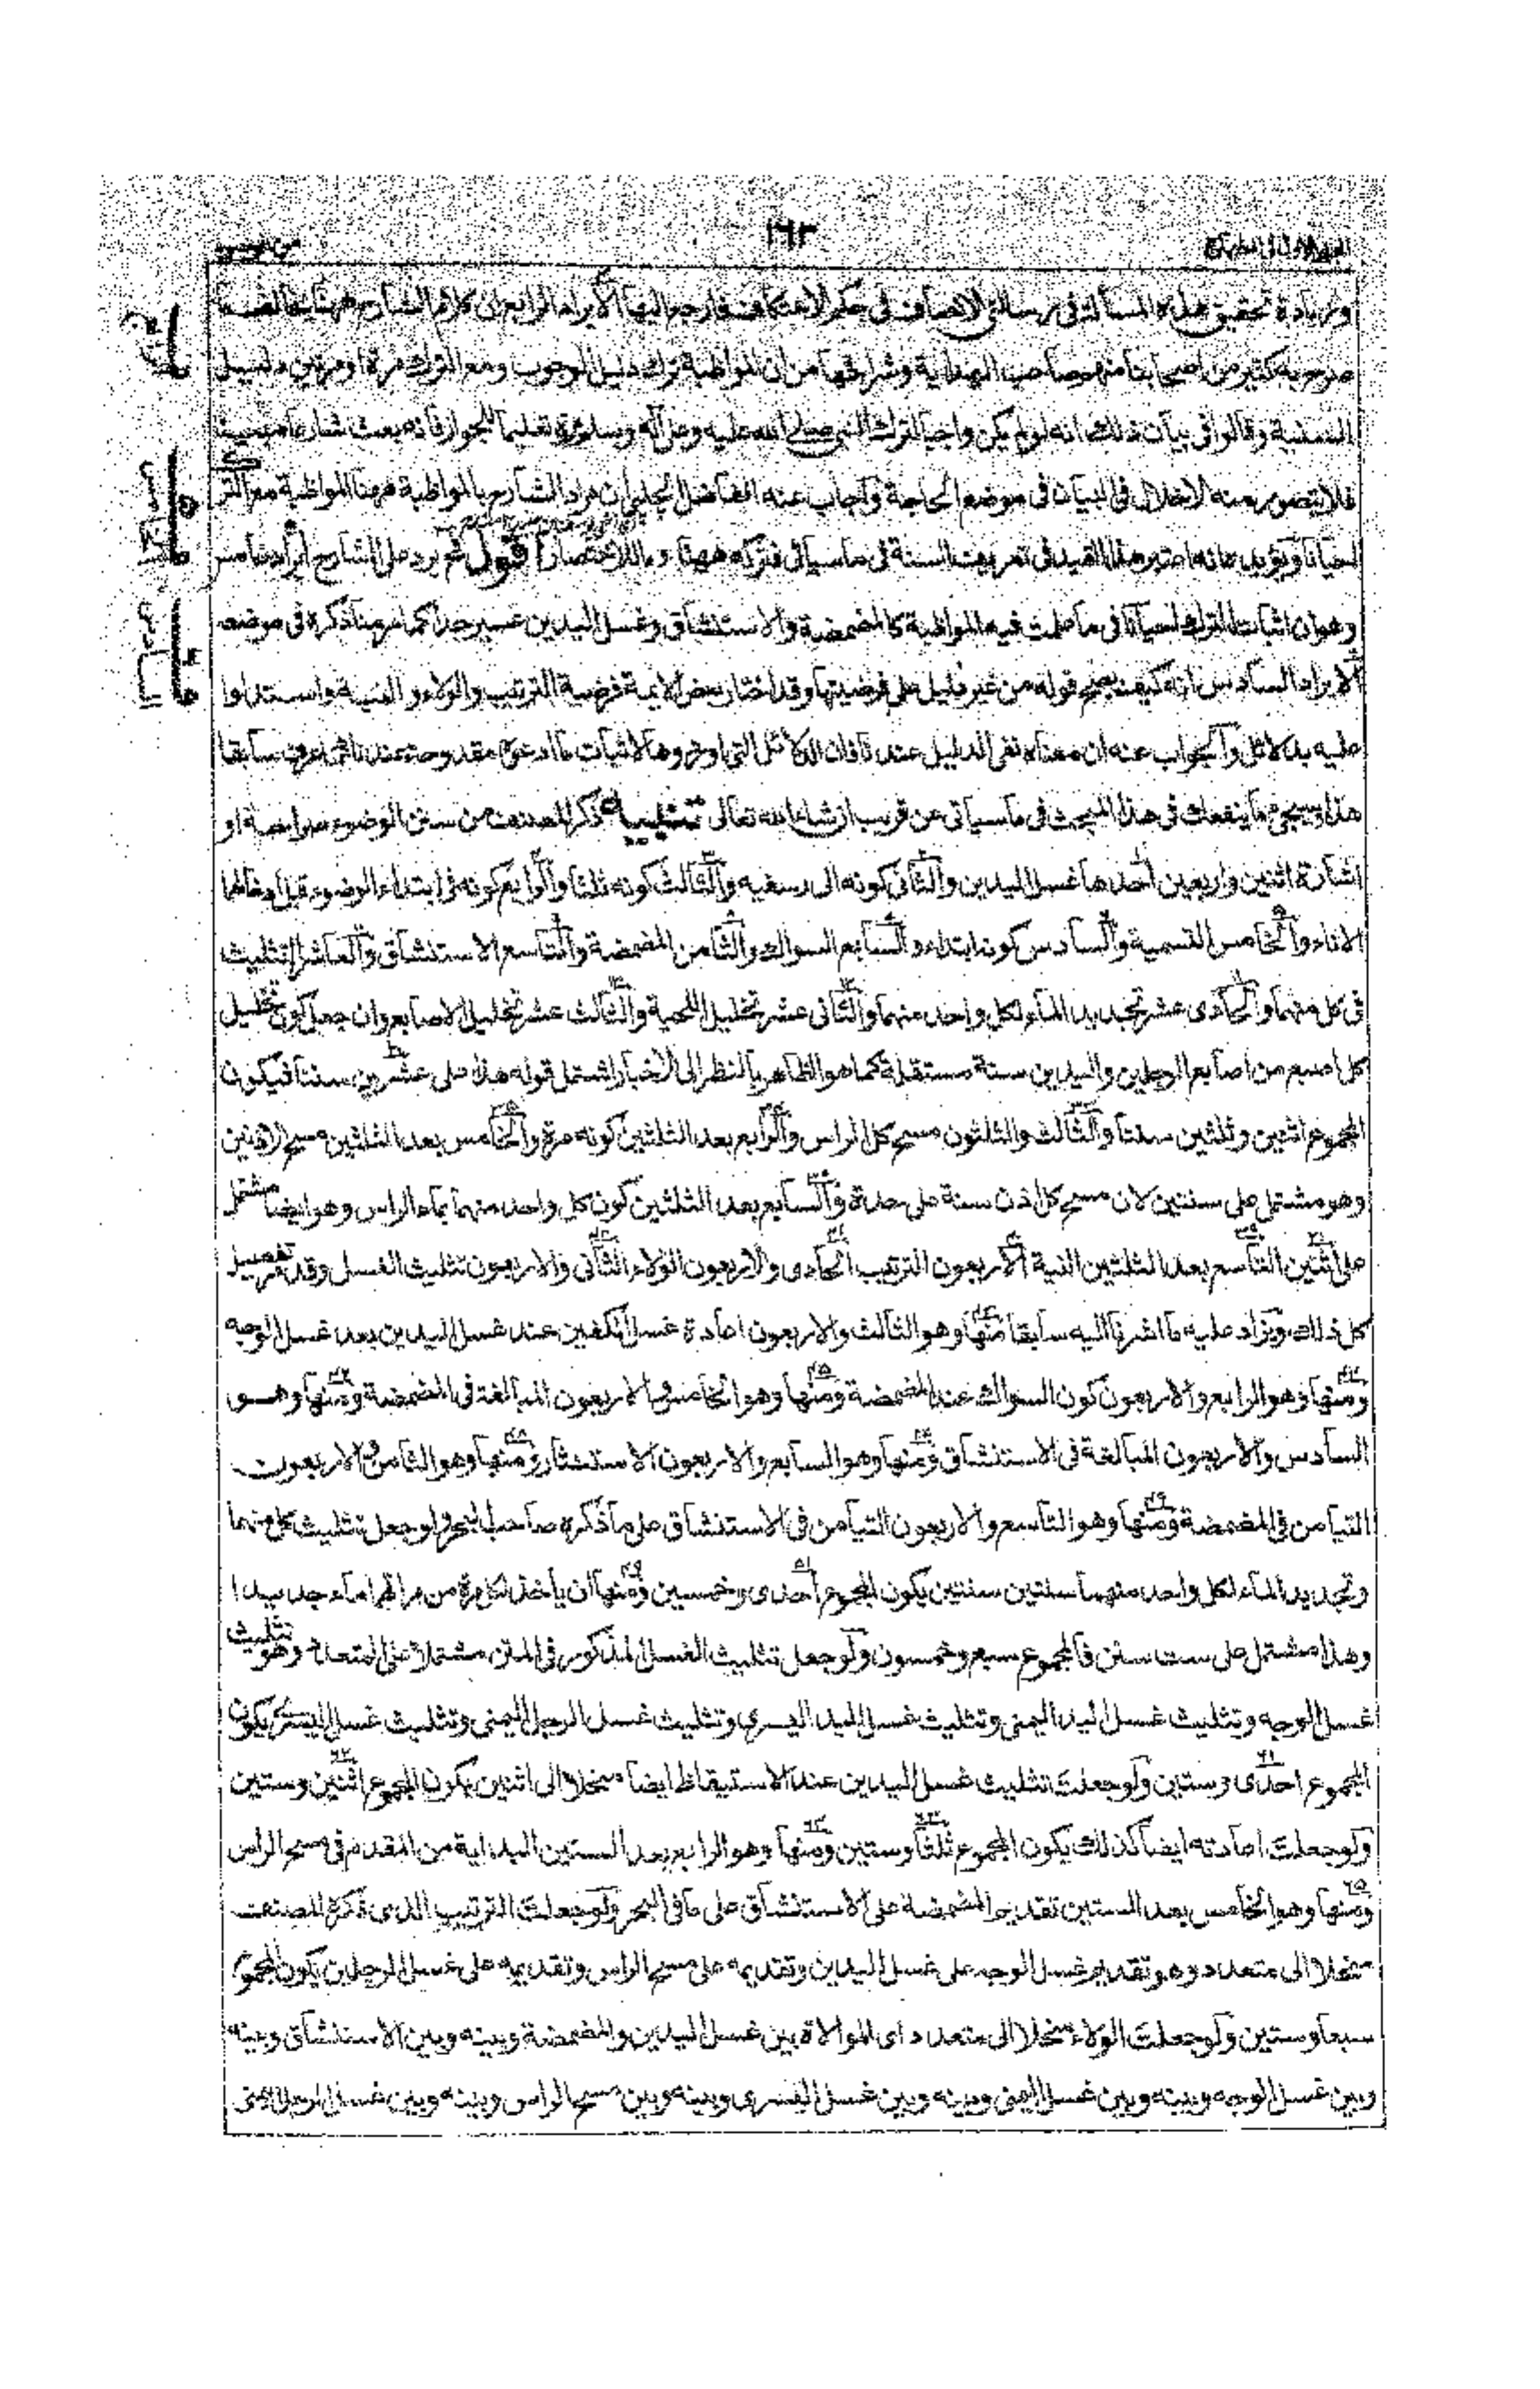 ١٦٣
وزيادة تحقيق هذه المسألة في رسالتي الانصاف في حكم الاعتكاف فارجع اليها الايراد الرابع ان كلام الشارح ههنا
صرح به كثير من اصحابنا منهم صاحب الهداية وشراحها من ان المواظبة بلا ترك دليل الوجوب ومع الترك مرة او مرتين دليل
السنية وقالوا في بيان ذلك انه لو لم يكن واجبا لترك النبي صلى الله عليه وعلى آله وسلم مرة تعليما للجواز فانه بعث شارعا مبينا
فلا يتصور منه الاخلال في البيان في موضع الحاجة وآجاب عنه الفاضل الچلپي ان مراد الشارح بالمواظبة ههنا المواظبة مع الترك
احيانا ويؤيده انه اعتبر هذا القيد في تعريف السنة في ما سيأتي فتركه ههنا روما للاختصار اقول ثم يرد على الشارح ايراد خامس
وهو ان اثبات الترك احيانا في ما علمت فيه المواظبة كالمضمضة والاستنشاق وغسل اليدين عسير جدا كما مر منا ذكره في موضعه
الايراد السادس انه كيف يصح قوله من غير دليل على فرضيتها وقد اختار بعض الايمة فرضية الترتيب والولاء والنية واستدلوا
عليه بدلائل وآلجواب عنه ان معناه نفي الدليل عندنا فان الدلائل التي اوردوها لاثبات ما ادعوه مقدوحة عندنا كما عرفت سابقا
هذا وسيجئ ما ينفعك في هذا المبحث في ما سياتي عن قريب ان شاء الله تعالى تنبيه ذكر المصنف من سنن الوضوء صراحة او
اشارة اثنين واربعين احدها غسل اليدين والثاني كونه الى رسغيه والثالث كونه ثلثا والرابع كونه في ابتداء الوضوء قبل ادخالهما
الاناء والخامس التسمية والسادس كونه ابتداء والسابع السواك والثامن المضمضة والتاسع الاستنشاق والعاشر التثليث
في كل منهما والحادي عشر تجديد الماء لكل واحد منهما والثاني عشر تخليل اللحية والثالث عشر تخليل الاصابع وان جعل كون تخليل
كل اصبع من اصابع الرجلين واليدين سنة مستقلة كما هو الظاهر بالنظر الى الاخبار اشتمل قوله هذا على عشرين سننا فيكون
المجموع اثنين وثلثين سننا والثالث والثلثون مسح كل الراس والرابع بعد الثلثين كونه مرة والخامس بعد الثلثين مسح الاذنين
وهو مشتمل على سنتين لان مسح كل اذن سنة على حدة والسابع بعد الثلثين كون كل واحد منهما بماء الراس وهو ايضا مشتمل
على اثنين التاسع بعد الثلثين النية الاربعون الترتيب الحادي والاربعون الولاء الثاني والاربعون تثليث الغسل وقد مر تفصيل
كل ذلك ويزاد عليه ما اشرنا اليه سابقا منها وهو الثالث والاربعون اعادة غسل الكفين عند غسل اليدين بعد غسل الوجه
ومنها وهو الرابع والاربعون كون السواك عند المضمضة ومنها وهو الخامس والاربعون المبالغة في المضمضة ومنها وهو
السادس والاربعون المبالغة في الاستنشاق ومنها وهو السابع والاربعون الاستنثار ومنها وهو الثامن والاربعون
التيامن في المضمضة ومنها وهو التاسع والاربعون التيامن في الاستنشاق على ما ذكره صاحب البحر ولو جعل تثليث كل منهما
وتجديد الماء لكل واحد منهما سنتين سنتين يكون المجموع احدى وخمسين ومنها ان ياخذ لكل مرة من مراتهما ماء جديدا
وهذا مشتمل على ست سنن فالمجموع سبع وخمسون ولو جعل تثليث الغسل المذكور في المتن مشتملا على المتعدد وهو تثليث
غسل الوجه وتثليث غسل اليد اليمنى وتثليث غسل اليد اليسرى وتثليث غسل الرجل اليمنى وتثليث غسل اليسرى يكون
المجموع احدى وستين ولو جعلت تثليث غسل اليدين عند الاستيقاظ ايضا منحلا الى اثنين يكون المجموع اثنين وستين
ولو جعلت اعادته ايضا كذلك يكون المجموع ثلثا وستين ومنها وهو الرابع بعد الستين البداية من المقدم في مسح الراس
ومنها وهو الخامس بعد الستين تقديم المضمضة على الاستنشاق على ما في البحر ولو جعلت الترتيب الذي ذكره المصنف
منحلا الى متعدد وهو تقديم غسل الوجه على غسل اليدين وتقديمه على مسح الراس وتقديمه على غسل الرجلين يكون المجموع
سبعا وستين ولو جعلت الولاء منحلا الى متعدد اى الموالاة بين غسل اليدين والمضمضة وبينه وبين الاستنشاق وبينه
وبين غسل الوجه وبينه وبين غسل اليمنى وبينه وبين غسل اليسرى وبينه وبين مسح الراس وبينه وبين غسل الرجل اليمنى